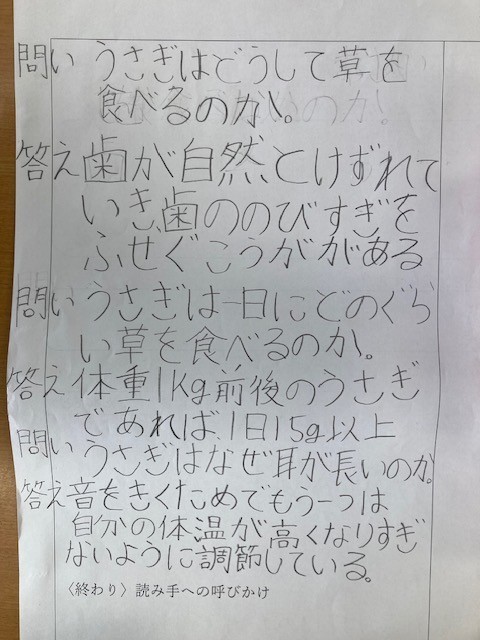 問い うさぎはどうして草を
食べるのか。
答え 歯が自然とけずれて
いき、歯ののびすぎを
ふせぐこうががある
問い うさぎは一日にどのぐら
い草を食べるのか。
答え 体重1Kg前後のうさぎ
であれば、1日15g以上
問い うさぎはなぜ耳が長いのか。
答え 音をきくためでもう一つは
自分の体温が高くなりすぎ
ないように調節している。
〈終わり〉読み手への呼びかけ